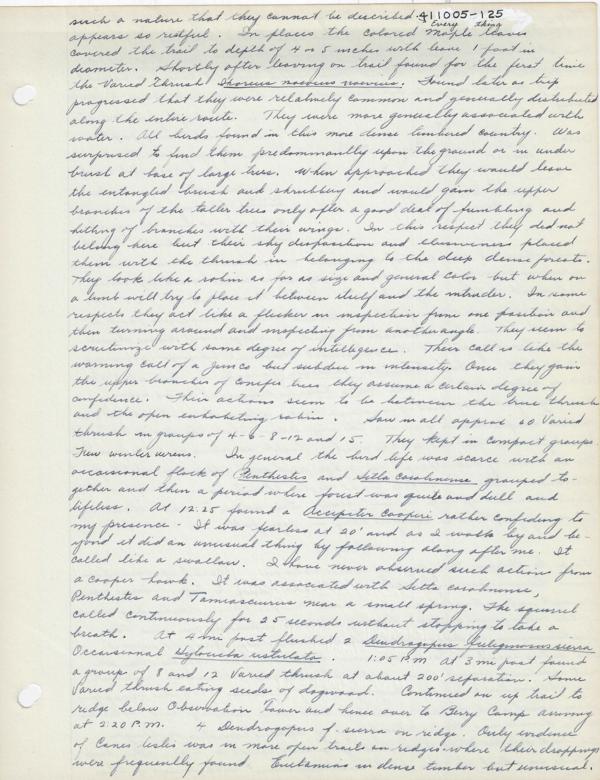 such a nature that they cannot be described. 411005-125
Every thing
appears so restful. In places the colored Maple leaves
covered the trail to depth of 4 or 5 inches with leave 1 foot in
diameter. Shortly after leaving on trail found for the first time
the Varied Thrush Ixoreus naevius naevius. Found later as trip
progressed that they were relatively common and generally distributed
along the entire route. They were more generally associated with
water. All birds found in this more dense timbered country. Was
surprised to find them predominantly upon the ground or in under
brush at base of large trees. When approached they would leave
the entangled brush and shrubbery and would gain the upper
branches of the taller trees only after a good deal of fumbling and
hitting of branches with their wings. In this respect they did not
belong here but their shy disposition and elusiveness placed
them with the thrush in belonging to the deep dense forests.
They look like a robin as far as size and general color but when on
a limb will try to place it between itself and the intruder. In some
respects they act like a flicker in inspection from one position and
then turning around and inspecting from another angle. They seem to
scrutinize with some degree of intelligence. Their call is like the
warning call of a junco but subdue in intensity. Once they gain
the upper branches of conifer trees they assume a certain degree of
confidence. Their actions seem to be between the true thrush
and the open inhabiting robin. Saw in all approx 60 Varied
thrush in groups of 4-6-8-12 and 15. They kept in compact groups.
Few winter wrens. In general the bird life was scarce with an
occasional flock of Penthestes and Sitta canadensis grouped to-
gether and then a period where forest was quite and dull and
lifeless. At 12:25 found a Accipiter Cooperi rather confiding to
my presence. It was fearless at 20' and as I walk by and be-
yond it did an unusual thing by following along after me. It
called like a swallow. I have never observed such actions from
a cooper hawk. It was associated with Sitta canadensis,
Penthestes and Tamiasciurus near a small spring. The squirrel
called continuously for 25 seconds without stopping to take a
breath. At 4 mi post flushed 2 Dendragapus fuliginosus sierra
Occasional Hylocichla ustulata. 1:05 P.M. At 3 mi post found
a group of 8 and 12 Varied thrush at about 200' separation. Some
Varied thrush eating seeds of dogwood. Continued on up trail to
ridge below Observation Tower and hence over to Berry Camp arriving
at 2:20 P.M. 4 Dendragapus f. sierra on ridge. Only evidence
of Canis lestes was in more open trails on ridges where their droppings
were frequently found. Eutamias in dense timber but unusual.